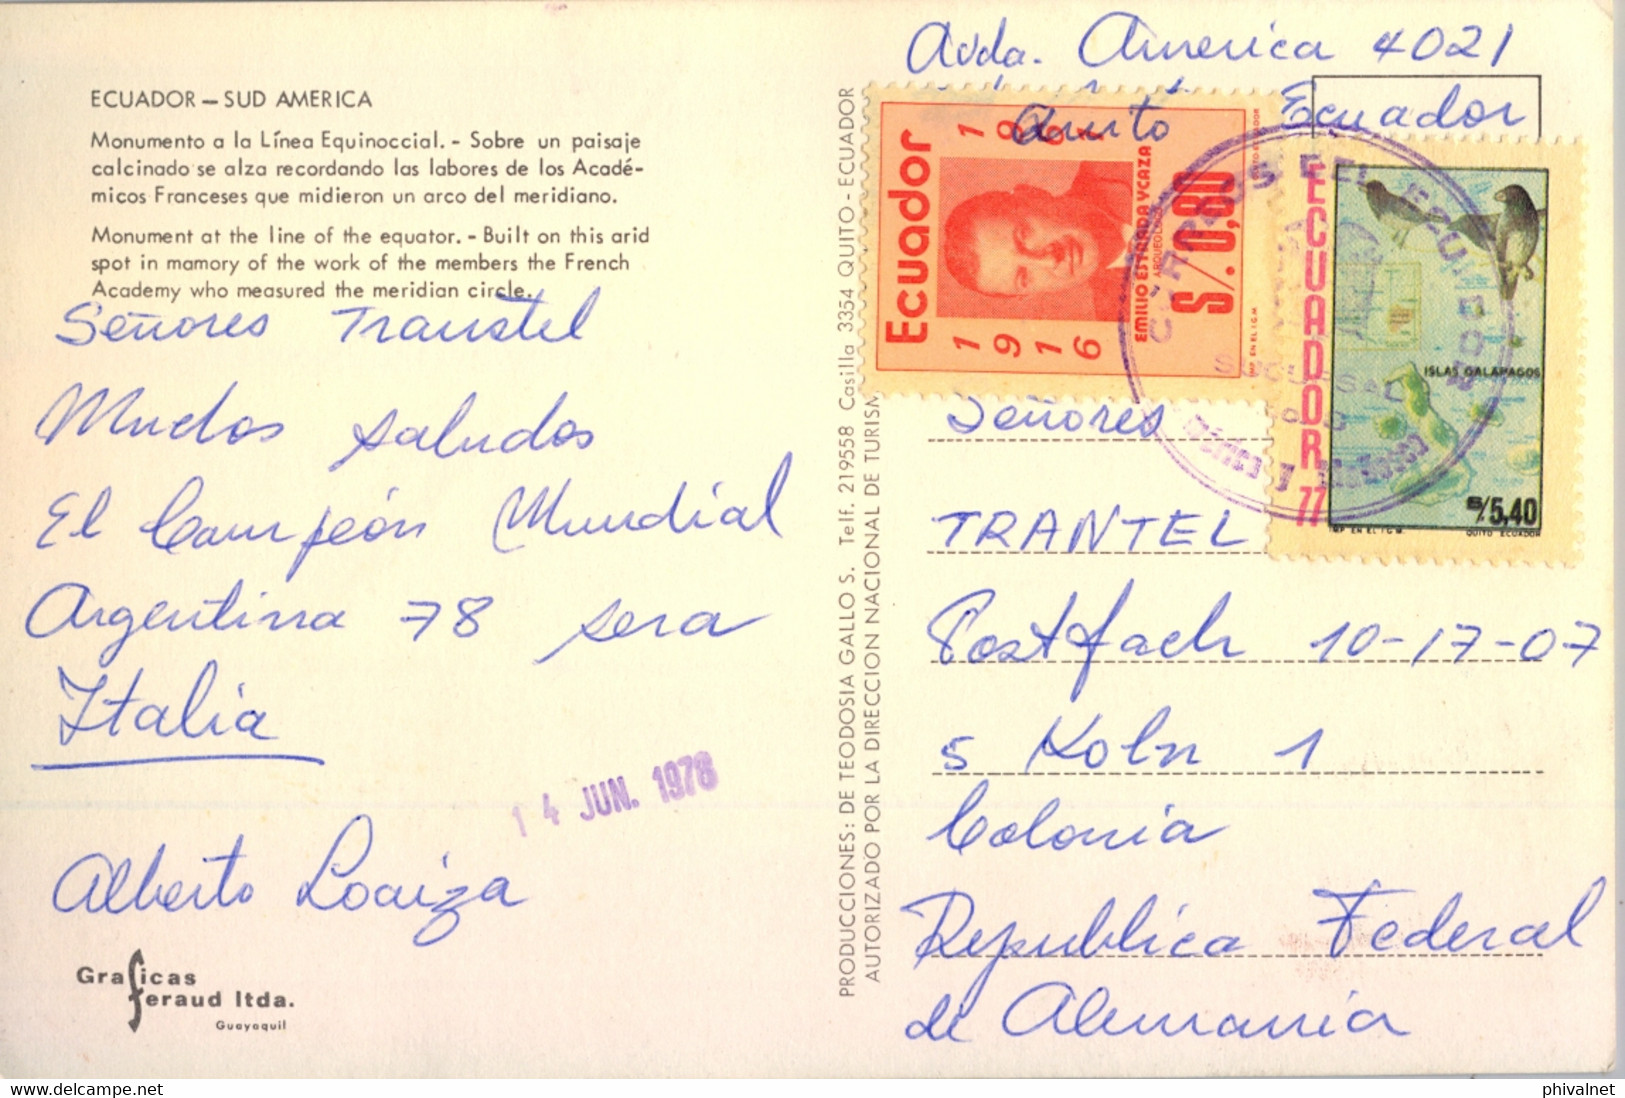 ECUADOR — SUD AMERICA
Monumento a la Línea Equinoccial. - Sobre un paisaje
calcinado se alza recordando las labores de los Acadé-
micos Franceses que midieron un arco del meridiano.
Monument at the line of the equator. - Built on this arid
spot in mamory of the work of the members the French
Academy who measured the meridian circle.
Señores Transtel
Muchos saludos
El Campeón Mundial
Argentina 78 sera
Italia
14 JUN. 1978
Alberto Loaiza
Graficas
feraud ltda.
Guayaquil
PRODUCCIONES: DE TEODOSIA GALLO S. Telf. 219558 Casilla 3354 QUITO - ECUADOR
AUTORIZADO POR LA DIRECCION NACIONAL DE TURISM
Avda. America 4021
Quito Ecuador
Ecuador
1981
1916
EMILIO ESTRADA YCAZA
ARQUEOLOGO
S/. 0,80
IMP. EN EL I.G.M.
ECUADOR 77
ISLAS GALAPAGOS
S/. 5,40
IMP EN EL I.G.M.
QUITO ECUADOR
SUCURSAL
Señores
TRANTEL
Postfach 10-17-07
5 Koln 1
Colonia
Republica Federal
de Alemania
phivalnet